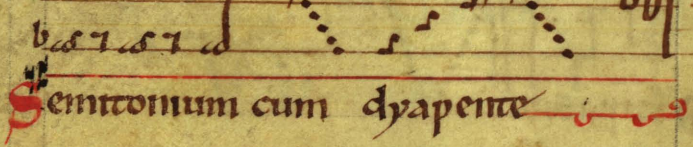 Semitonium cum dyapente